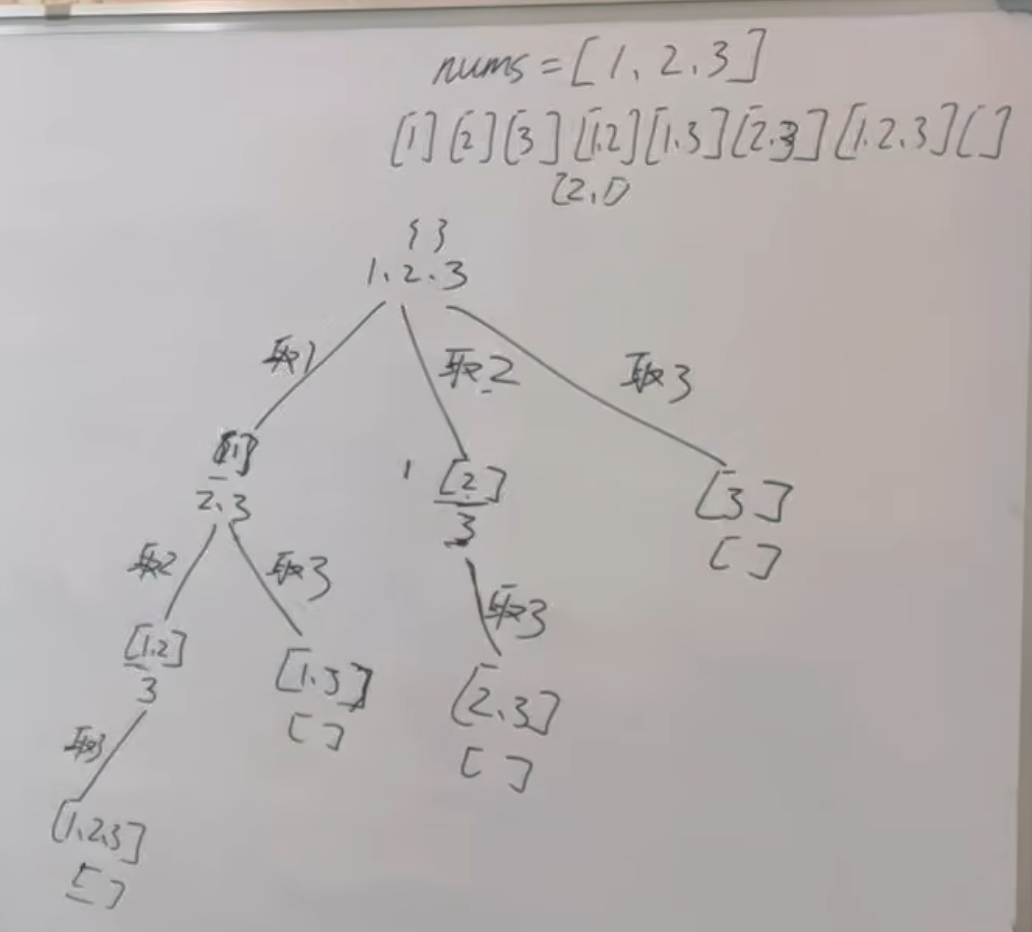 nums = [1、2、3]
[1] [2] [3] [1.2] [1.3] [2.3] [1.2.3] [ ]
[2,1]
{ }
1、2、3
取1
取2
取3
[1]
2、3
1
[2]
3
[3]
[ ]
取2
取3
取3
[1.2]
3
[1、3]
[ ]
[2、3]
[ ]
取3
[1、2、3]
[ ]